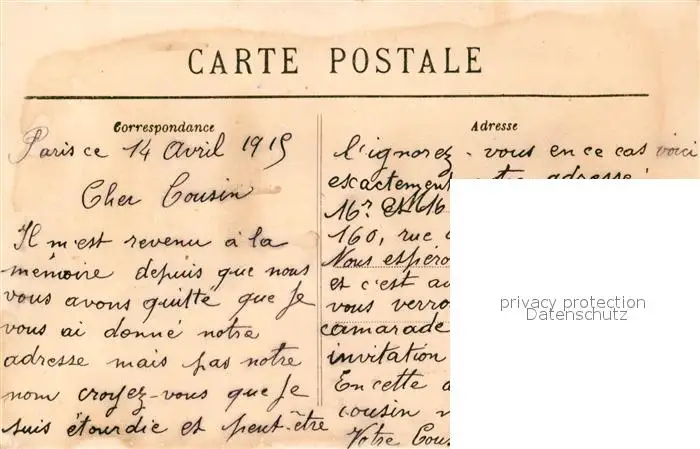 CARTE POSTALE
Correspondance
Paris ce 14 Avril 1915
Cher Cousin
Il m'est revenu à la
mémoire depuis que nous
vous avons quitté que je
vous ai donné notre
adresse mais pas notre
nom croyez-vous que je
suis étourdie et peut-être
Adresse
l'ignorez-vous en ce cas voici
exactement adresse:
160, rue
Nous espéro
et c'est au
vous verro
camarade
invitation
En cette a
cousin
Votre Cous
privacy protection
Datenschutz